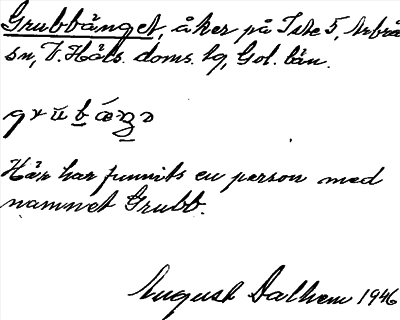 Grubbänget, åker på Iste 5, Arbrå
sn, V. Häls. doms. lg, Gol. län.
Här har funnits en person med
namnet Grubb.
August Dalhem 1946